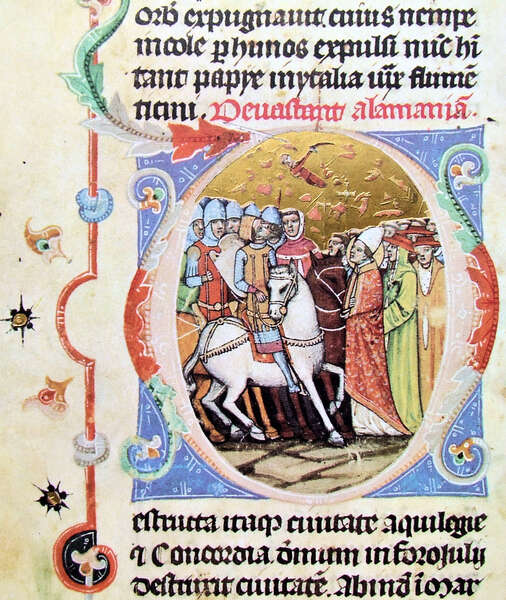 orb expugnauit cuius nempe
incole per hunos expulsi nunc hi
tant papye in ytalia uir flumẽ
ticini. Deuastant alamaniã.
estructa itaqꝫ ciuitate aquilegie
⁊ Concordia. dm̃um in foroiuly
destruxit ciuitatẽ. Abind̃ ĩ mar